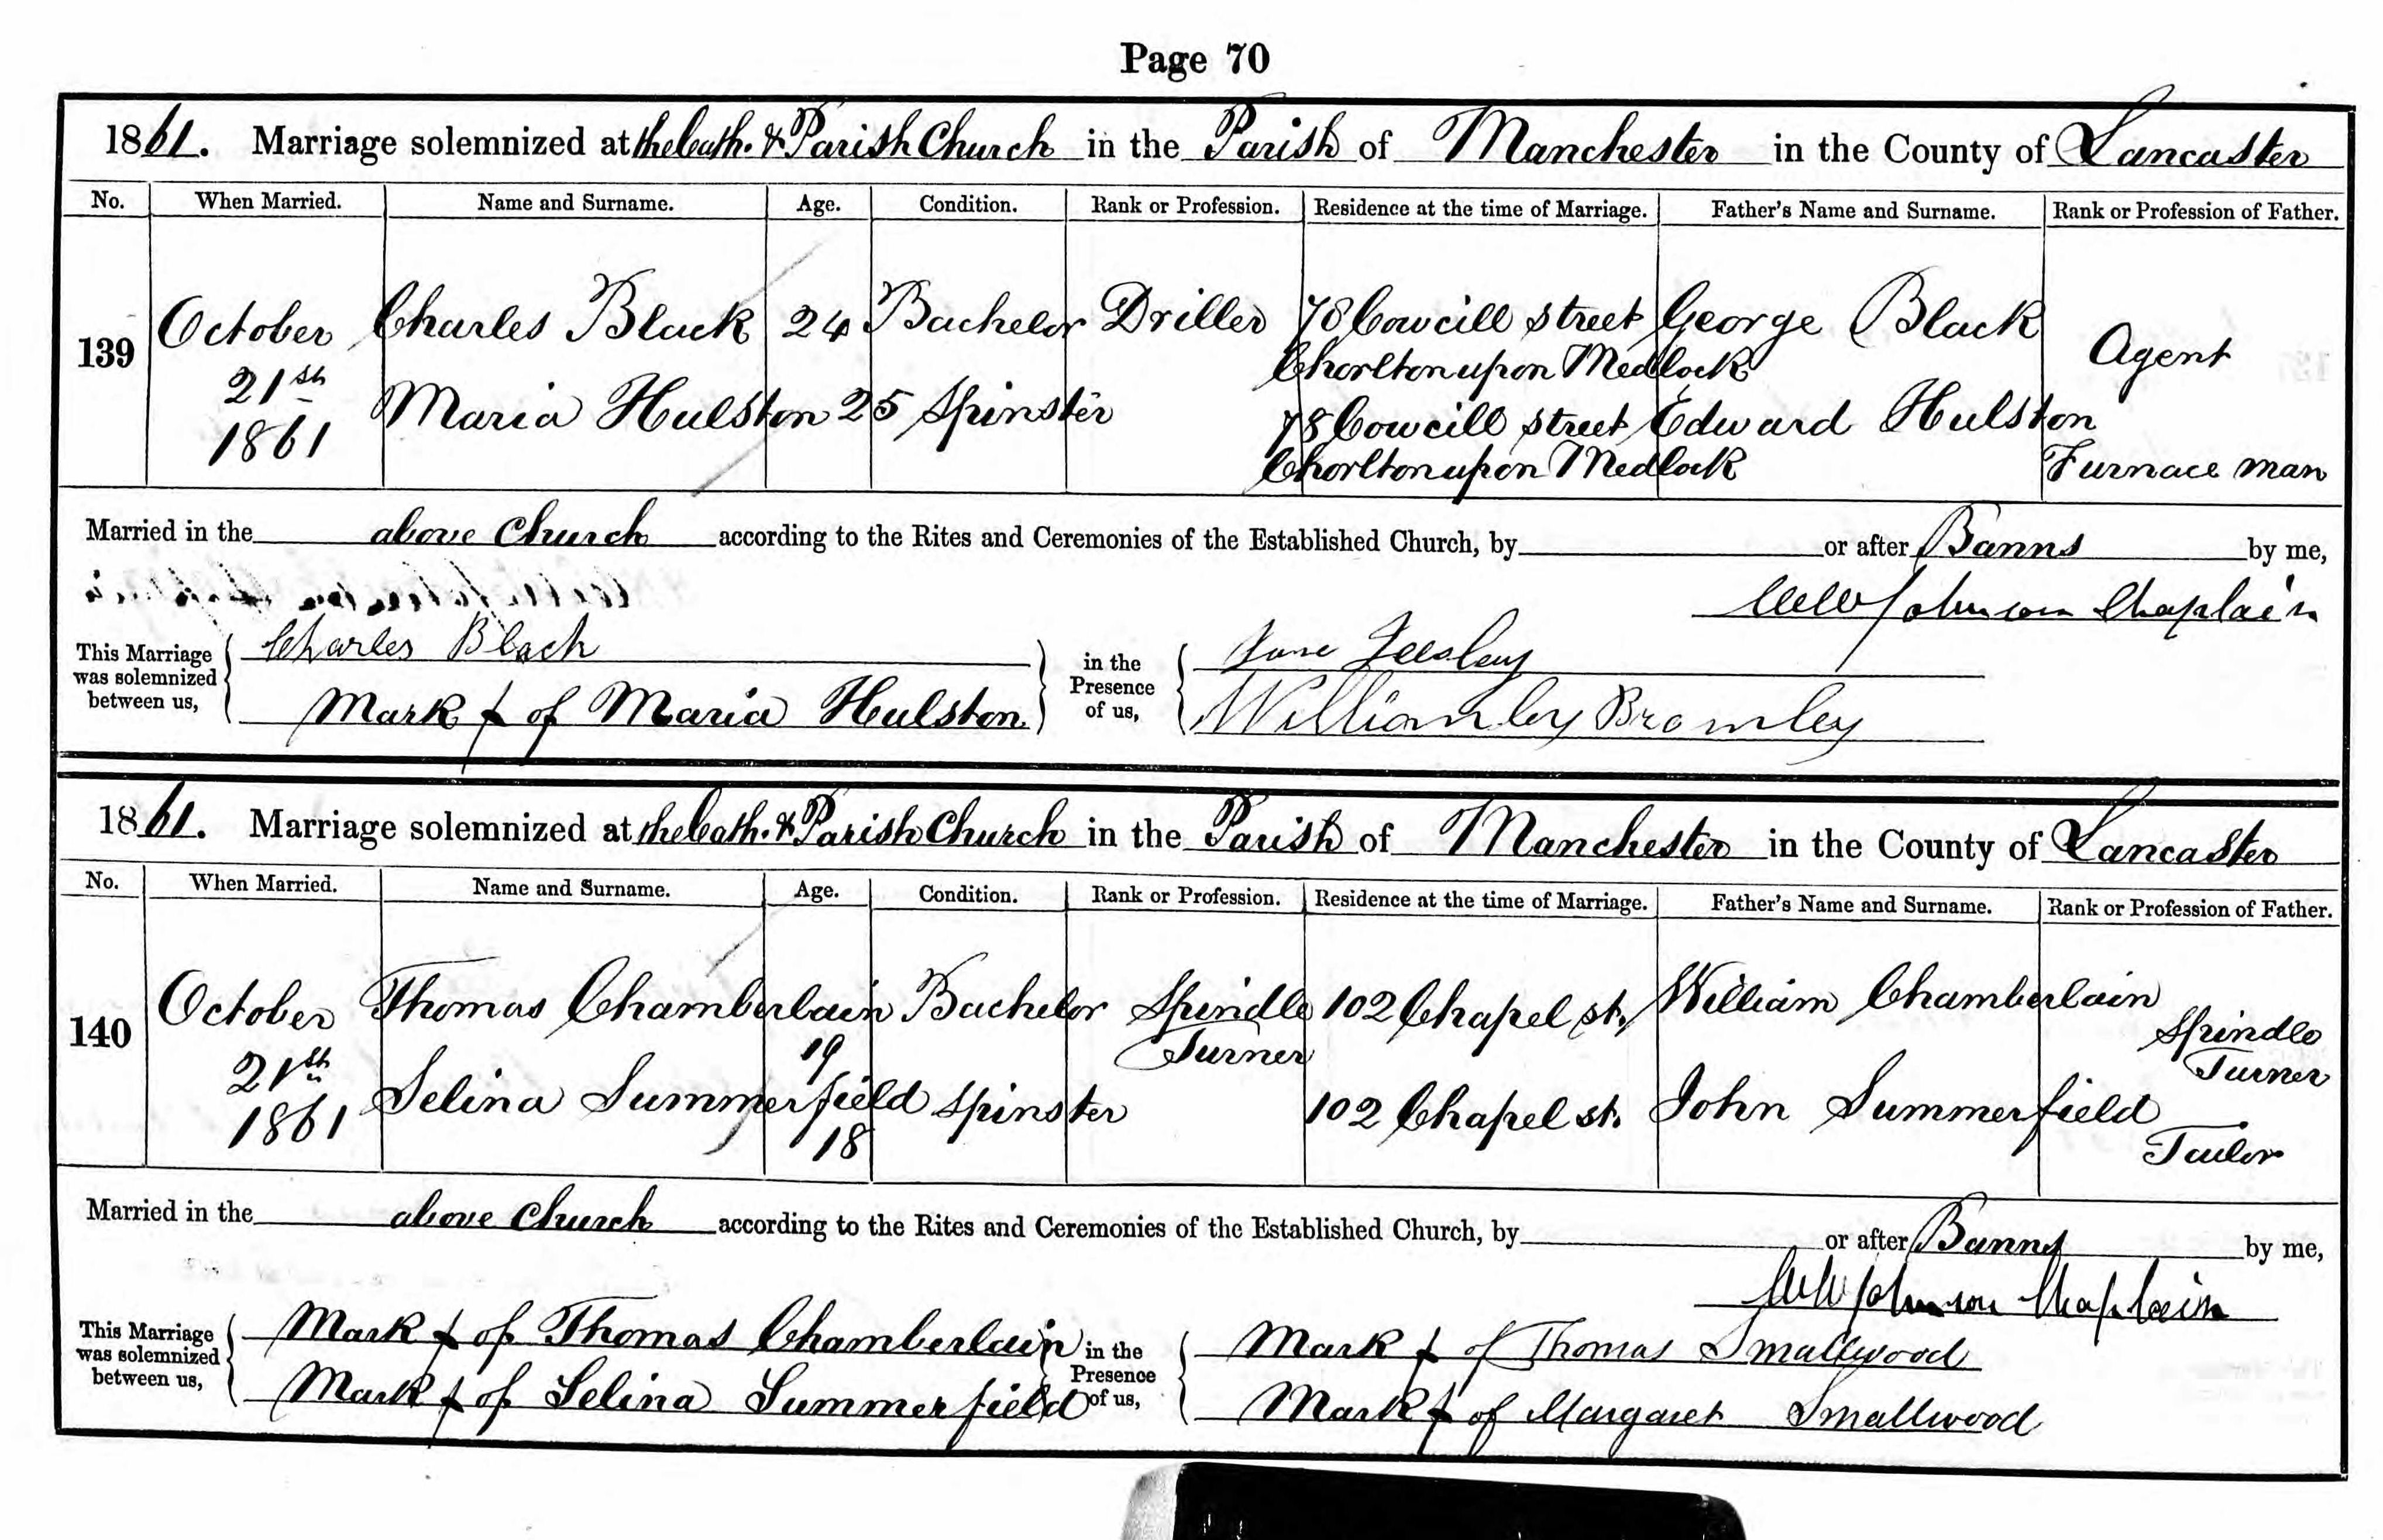 Page 70
1861. Marriage solemnized at the Cath. & Parish Church in the Parish of Manchester in the County of Lancaster
No. When Married. Name and Surname. Age. Condition. Rank or Profession. Residence at the time of Marriage. Father's Name and Surname. Rank or Profession of Father.
139 October 21st 1861 Charles Black 24 Bachelor Driller 78 Cowcill Street Chorlton upon Medlock George Black Agent
Maria Hulston 25 Spinster 78 Cowcill Street Chorlton upon Medlock Edward Hulston Furnace man
Married in the above Church according to the Rites and Ceremonies of the Established Church, by or after Banns by me,
Johnson Chaplain
This Marriage was solemnized between us, Charles Black in the Presence of us, Jane
Mark X of Maria Hulston William Bromley
1861. Marriage solemnized at the Cath. & Parish Church in the Parish of Manchester in the County of Lancaster
No. When Married. Name and Surname. Age. Condition. Rank or Profession. Residence at the time of Marriage. Father's Name and Surname. Rank or Profession of Father.
140 October 21st 1861 Thomas Chamberlain 19 Bachelor Spindle Turner 102 Chapel st. William Chamberlain Spindle Turner
Selina Summerfield 18 Spinster 102 Chapel st. John Summerfield Tailor
Married in the above Church according to the Rites and Ceremonies of the Established Church, by or after Banns by me,
Johnson Chaplain
This Marriage was solemnized between us, Mark X of Thomas Chamberlain in the Presence of us, Mark X of Thomas Smallwood
Mark X of Selina Summerfield Mark X of Margaret Smallwood